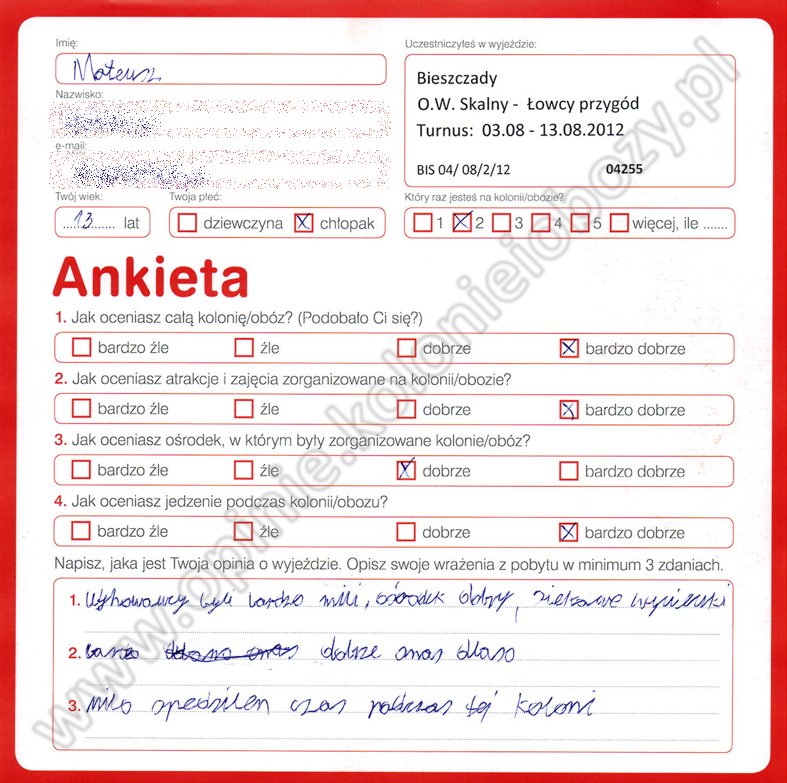 Imię:
Mateusz
Uczestniczyłeś w wyjeździe:
Bieszczady
O.W. Skalny - Łowcy przygód
Turnus: 03.08 - 13.08.2012
BIS 04/ 08/2/12 04255
Nazwisko:
e-mail:
Twój wiek:
13 lat
Twoja płeć:
dziewczyna chłopak
Który raz jesteś na kolonii/obozie?
1 2 3 4 5 więcej, ile .......
Ankieta
1. Jak oceniasz całą kolonię/obóz? (Podobało Ci się?)
bardzo źle źle dobrze bardzo dobrze
2. Jak oceniasz atrakcje i zajęcia zorganizowane na kolonii/obozie?
bardzo źle źle dobrze bardzo dobrze
3. Jak oceniasz ośrodek, w którym były zorganizowane kolonie/obóz?
bardzo źle źle dobrze bardzo dobrze
4. Jak oceniasz jedzenie podczas kolonii/obozu?
bardzo źle źle dobrze bardzo dobrze
Napisz, jaka jest Twoja opinia o wyjeździe. Opisz swoje wrażenia z pobytu w minimum 3 zdaniach.
1. Wyhowawcy byli bardzo mili, ośrodek dobry,
2. dobrze
3. miło spedziłem czas podczas tej koloni
www.opinie.kolonieiobozy.pl